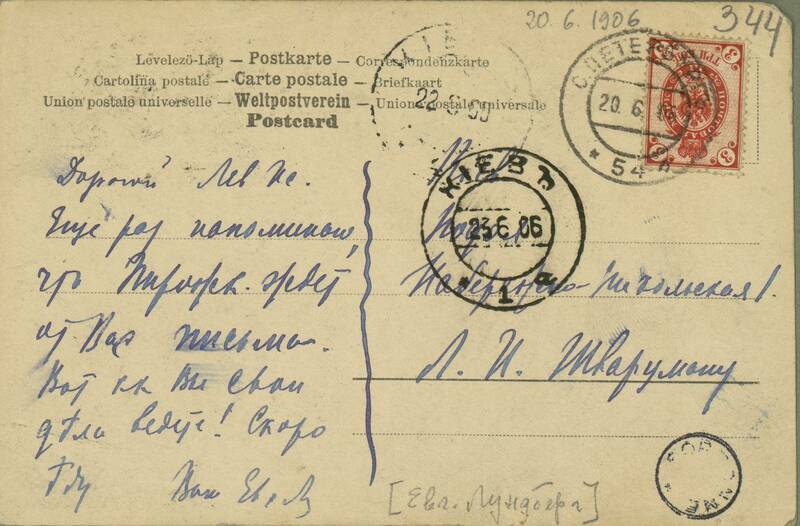 20.6.1906
344
Levelezö-Lap – Postkarte – Correspondenzkarte
Cartolina postale – Carte postale – Briefkaart
Union postale universelle – Weltpostverein – Union postale universale
Postcard
22 6
С.ПЕТЕРБ
20. 6.
* 54
3 3
КІЕВЪ
23 6 06
* 1
Дорогой Лев Ис.
Еще раз напоминаю,
что Пирожк. ждет
от Вас письма.
Вот кк Вы свои
дѣла ведете! Скоро
ѣду Ваш Ев. Л
Набережно-Никольская 1.
Л. И. Шварцману
[Евг. Лундберг]